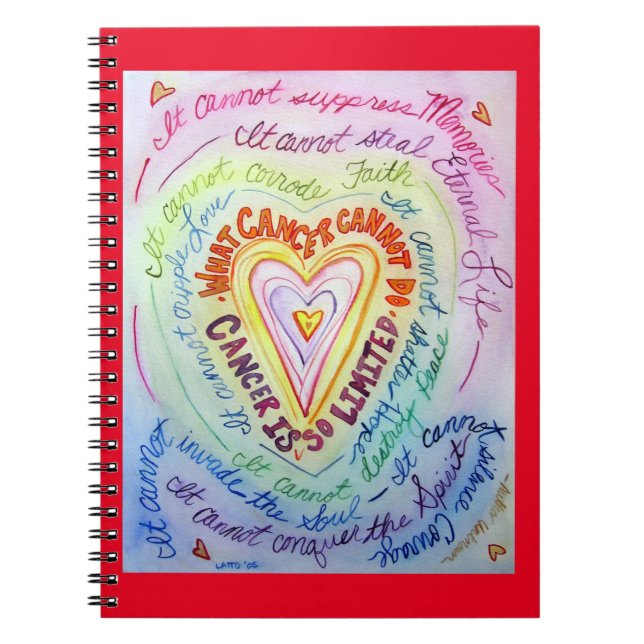 WHAT CANCER CANNOT DO.
CANCER IS SO LIMITED
It cannot cripple Love
It cannot shatter Hope
It cannot corrode Faith
It cannot destroy Peace
It cannot suppress Memories
It cannot silence Courage
It cannot invade the Soul
It cannot steal Eternal Life
It cannot conquer the Spirit
-Author Unknown
LATTO '05